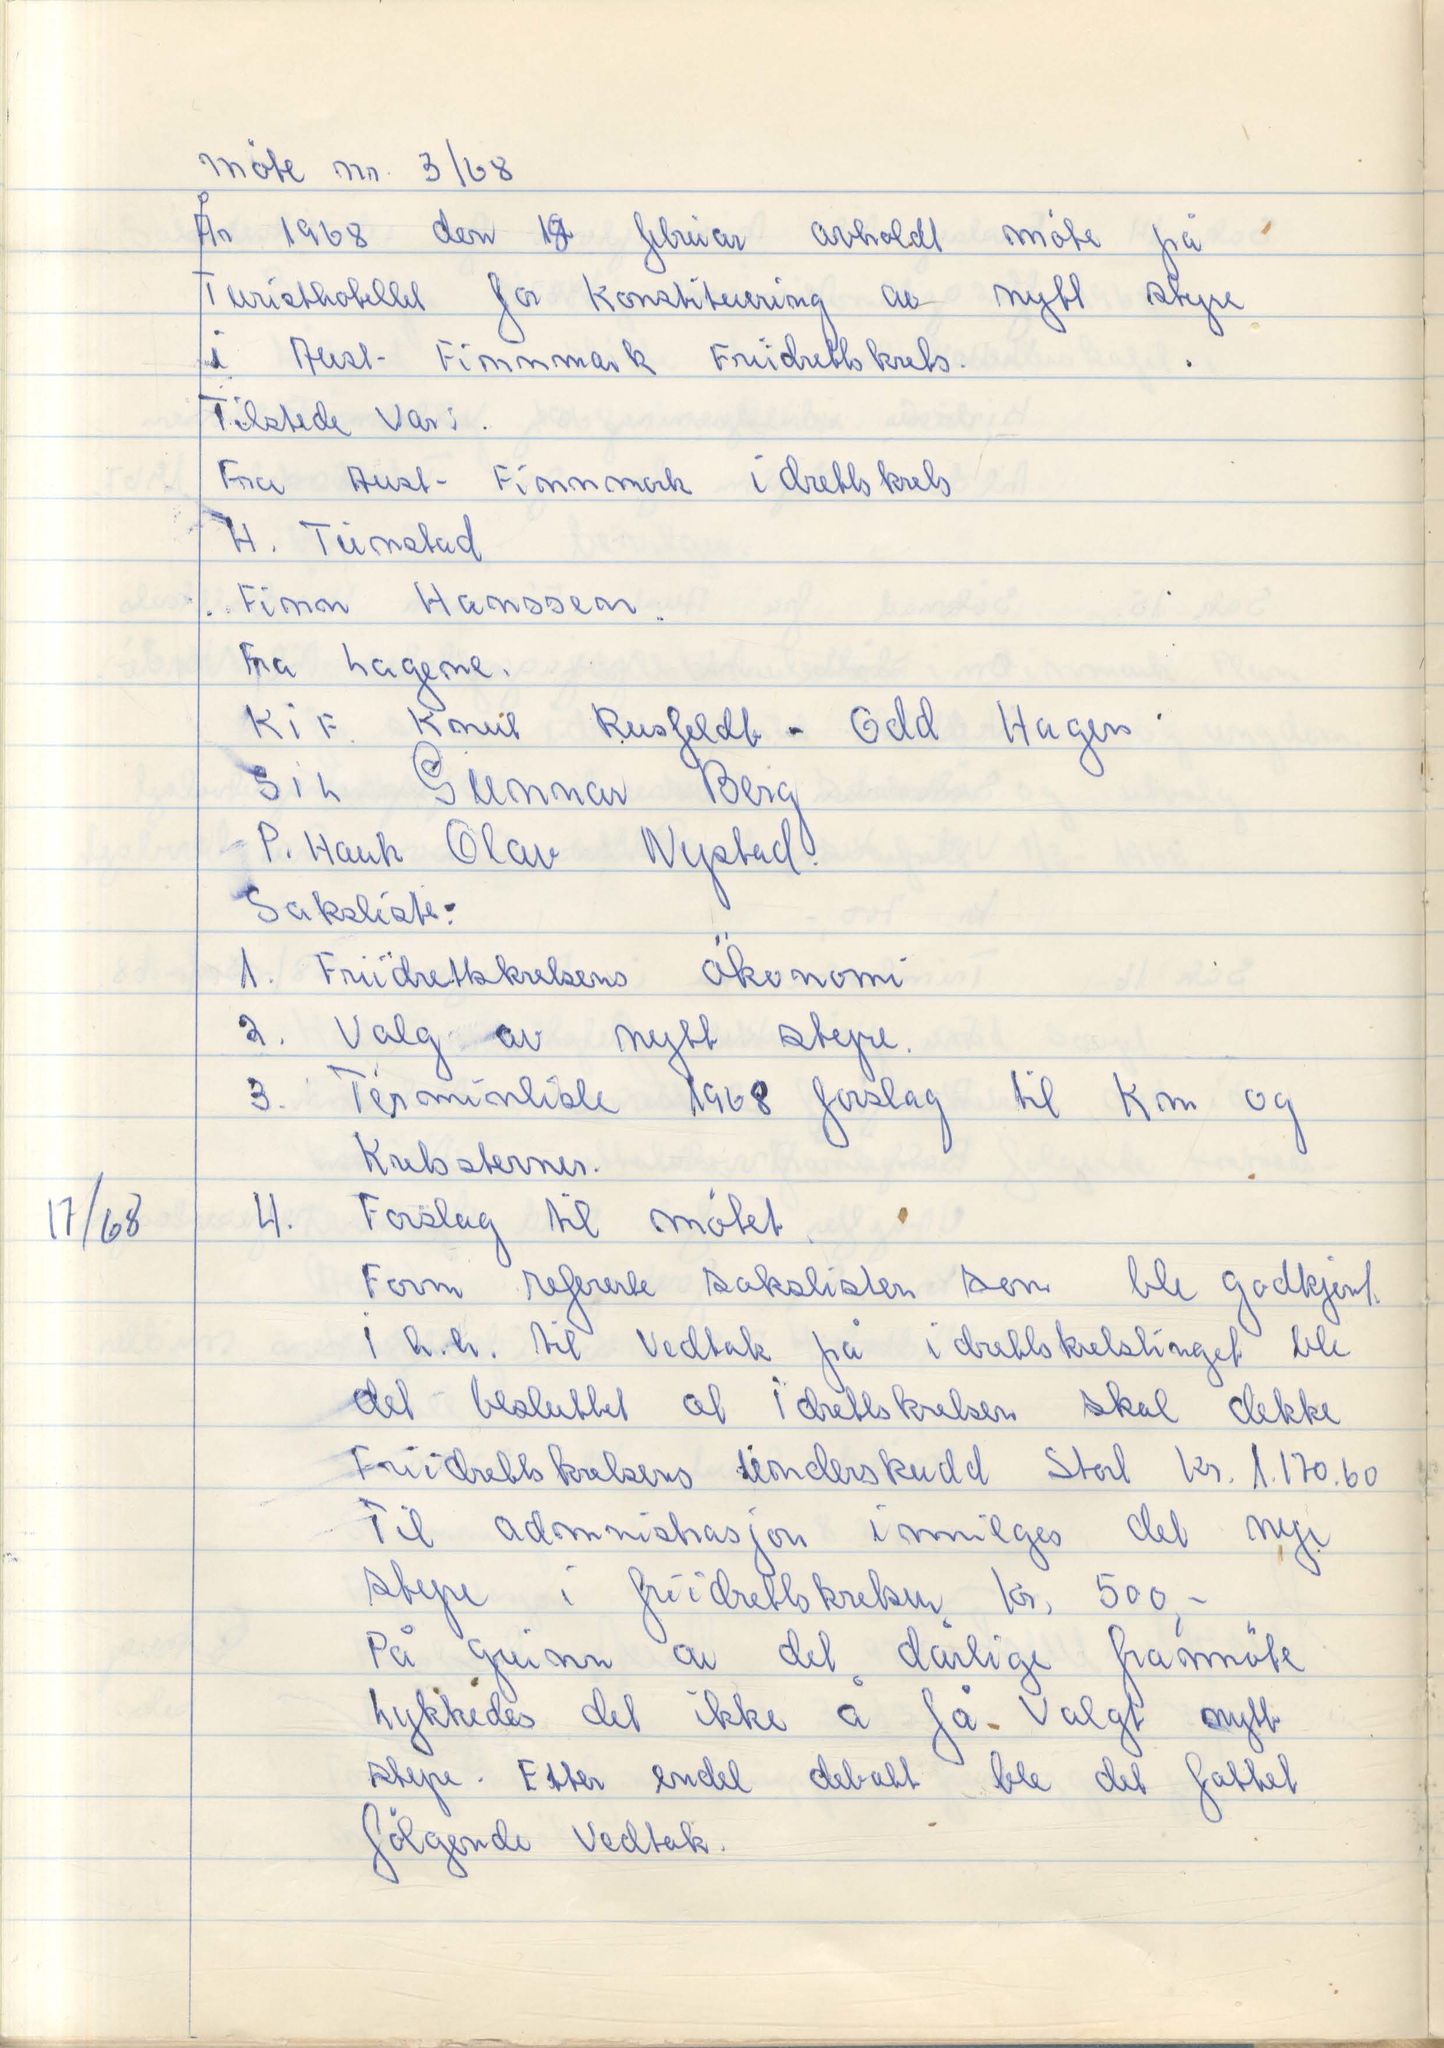 Möte nr. 3/68
År 1968 den februar avholdt möte på
Turisthotellet for Konstituering av nytt styre
i Aust- Finnmark Friidrettskrets.
Tilstede Var:
Fra Aust- Finnmark idrettskrets
H. Tunstad
Finn Hanssen
Fra Lagene.
KiF. Knut Rusfeldt - Odd Hagen
Sih Gunnar Berg
P. Hauk Olav Nystad.
Saksliste:
1. Friidrettskretsens Ökonomi
2. Valg av nytt styre.
3. Terminliste 1968 forslag til Km og
Kretsstevner.
17/68 4. Forslag til mötet.
Form refererte sakslisten som ble godkjent.
I h.h. til Vedtak på idrettskretstinget ble
det besluttet at Idrettskretsen skal dekke
Friidrettskretsens underskudd Stort Kr. 1.170.60
Til admnistrasjon innvilges det nye
styre i friidrettskretsen Kr. 500,-
På grunn av det dårlige framöte
Lykkedes det ikke å få Valgt nytt
styre. Etter endel debatt ble det fattet
fölgende Vedtak.